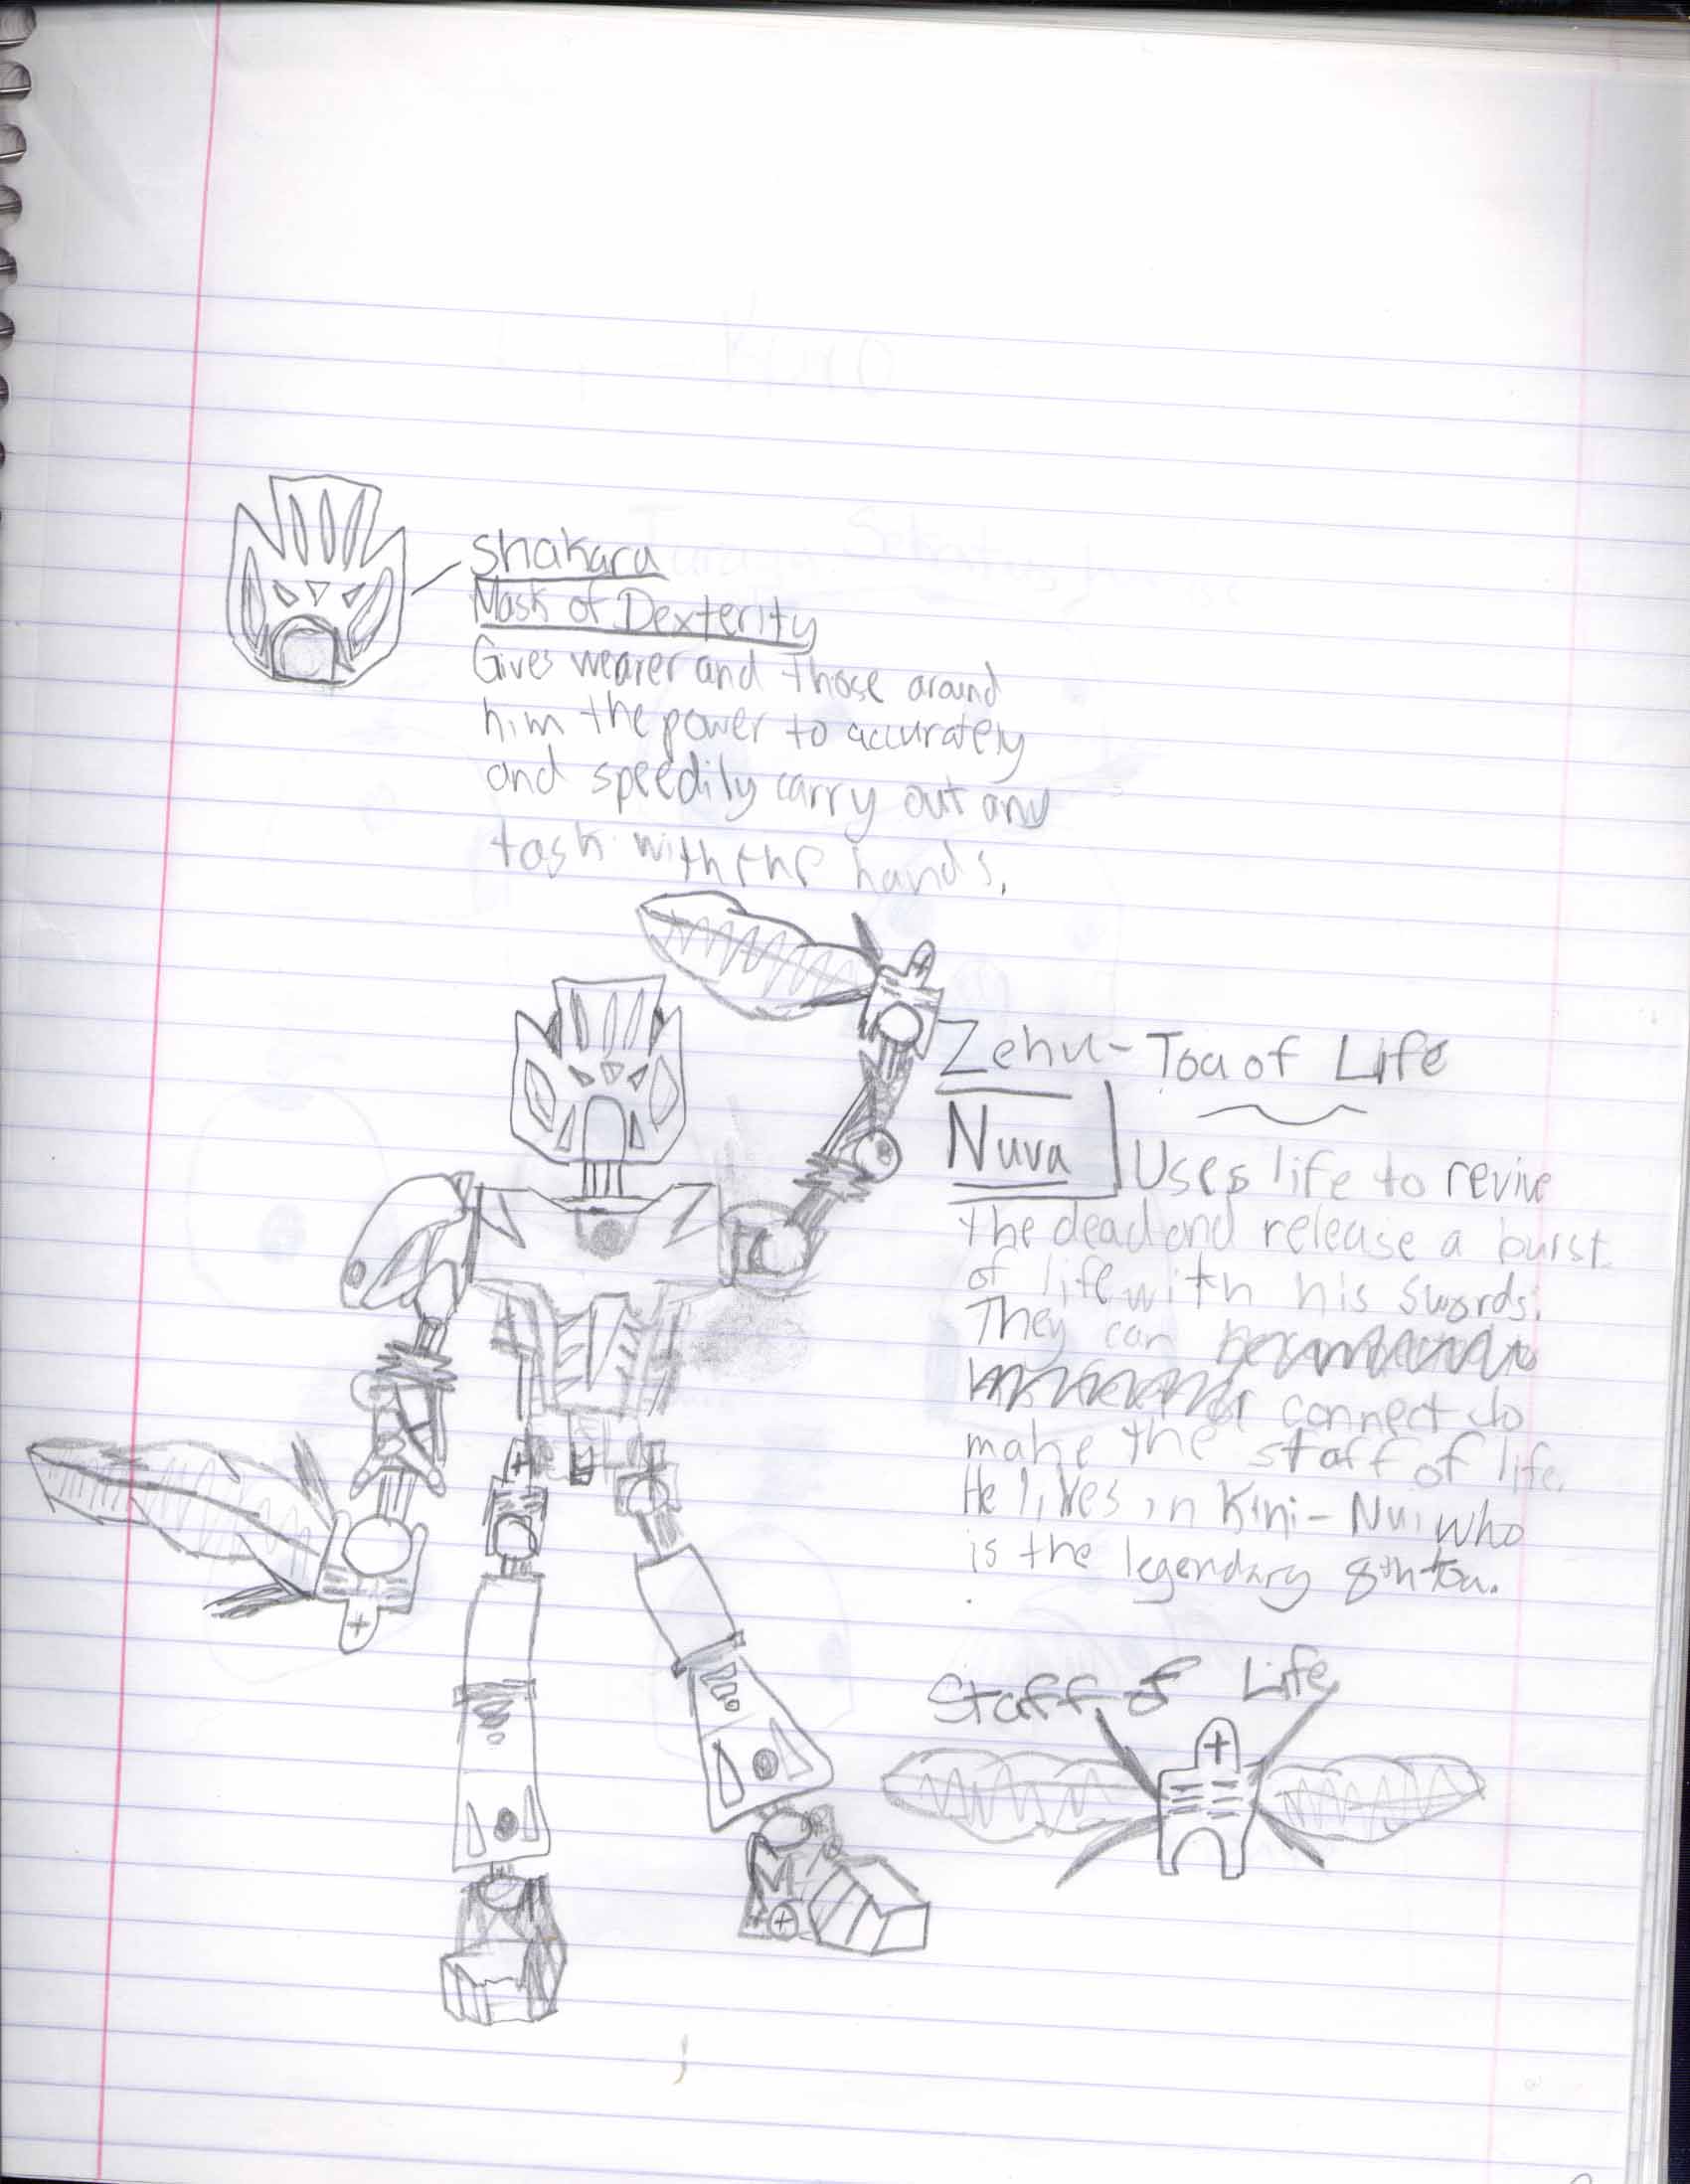 Shakara
Mask of Dexterity
Gives wearer and those around
him the power to accurately
and speedily carry out any
task with the hands.
Zehu - Toa of Life
Nuva
Uses life to revive
the dead and release a burst
of life with his swords.
They can
connect to
make the staff of life.
He lives in Kini-Nui who
is the legendary 8th toa.
Staff of Life